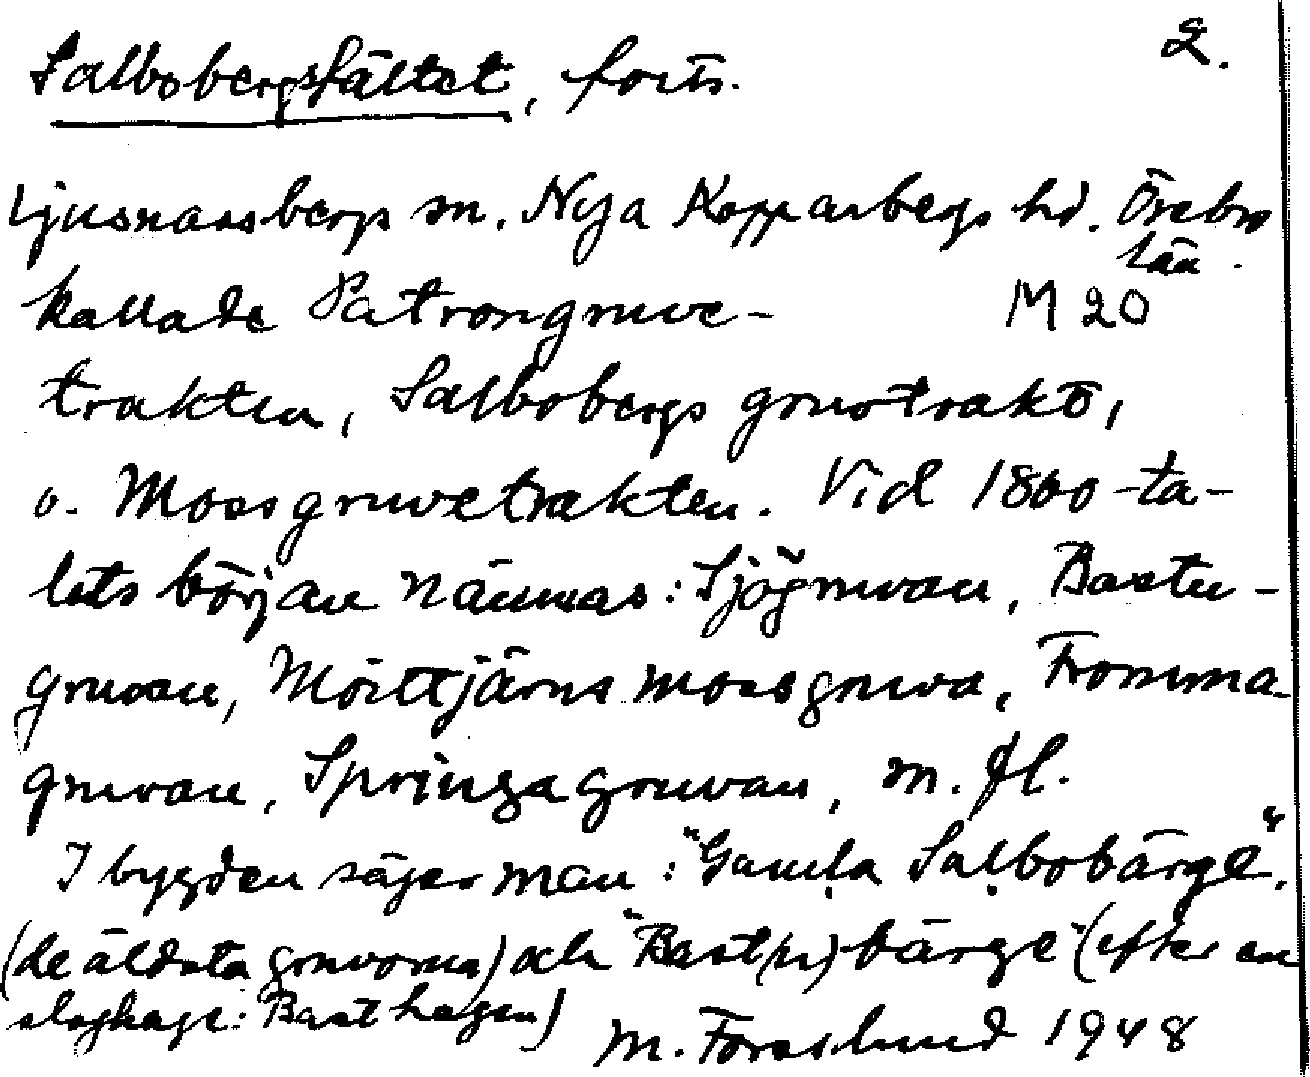 2.
Salbobergsfältet, forts.
Ljusnarsbergs sn. Nya Kopparbergs hd. Örebro
län.
kallade Patrongruve-
M 20
trakten, Salbobergs gruvtrakt,
o. Mossgruvetrakten. Vid 1800-ta-
lets början nämnas: Sjögruvan, Bastu-
gruvan, Mörttjärns mossgruva, Fromma-
gruvan, Springagruvan, m. fl.
I bygden säger man: "Gamla Salbobärge".
(de äldsta gruvorna) och "Bast(u)bärge" (efter en
sloghage: Basthagen)
M. Forsslund 1948